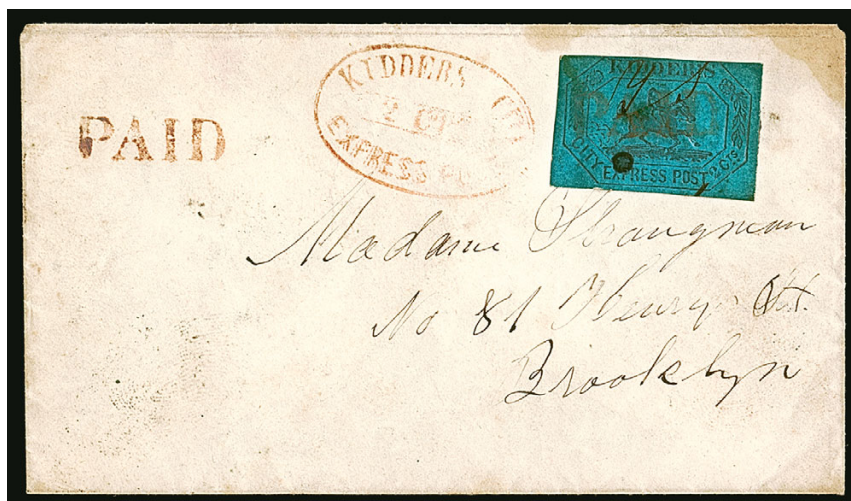 PAID
KIDDERS CITY
2 CTS
EXPRESS PO
KIDDERS
PAID
CITY EXPRESS POST 2 Cts
Madame Strangman
No 81 Henry St.
Brooklyn